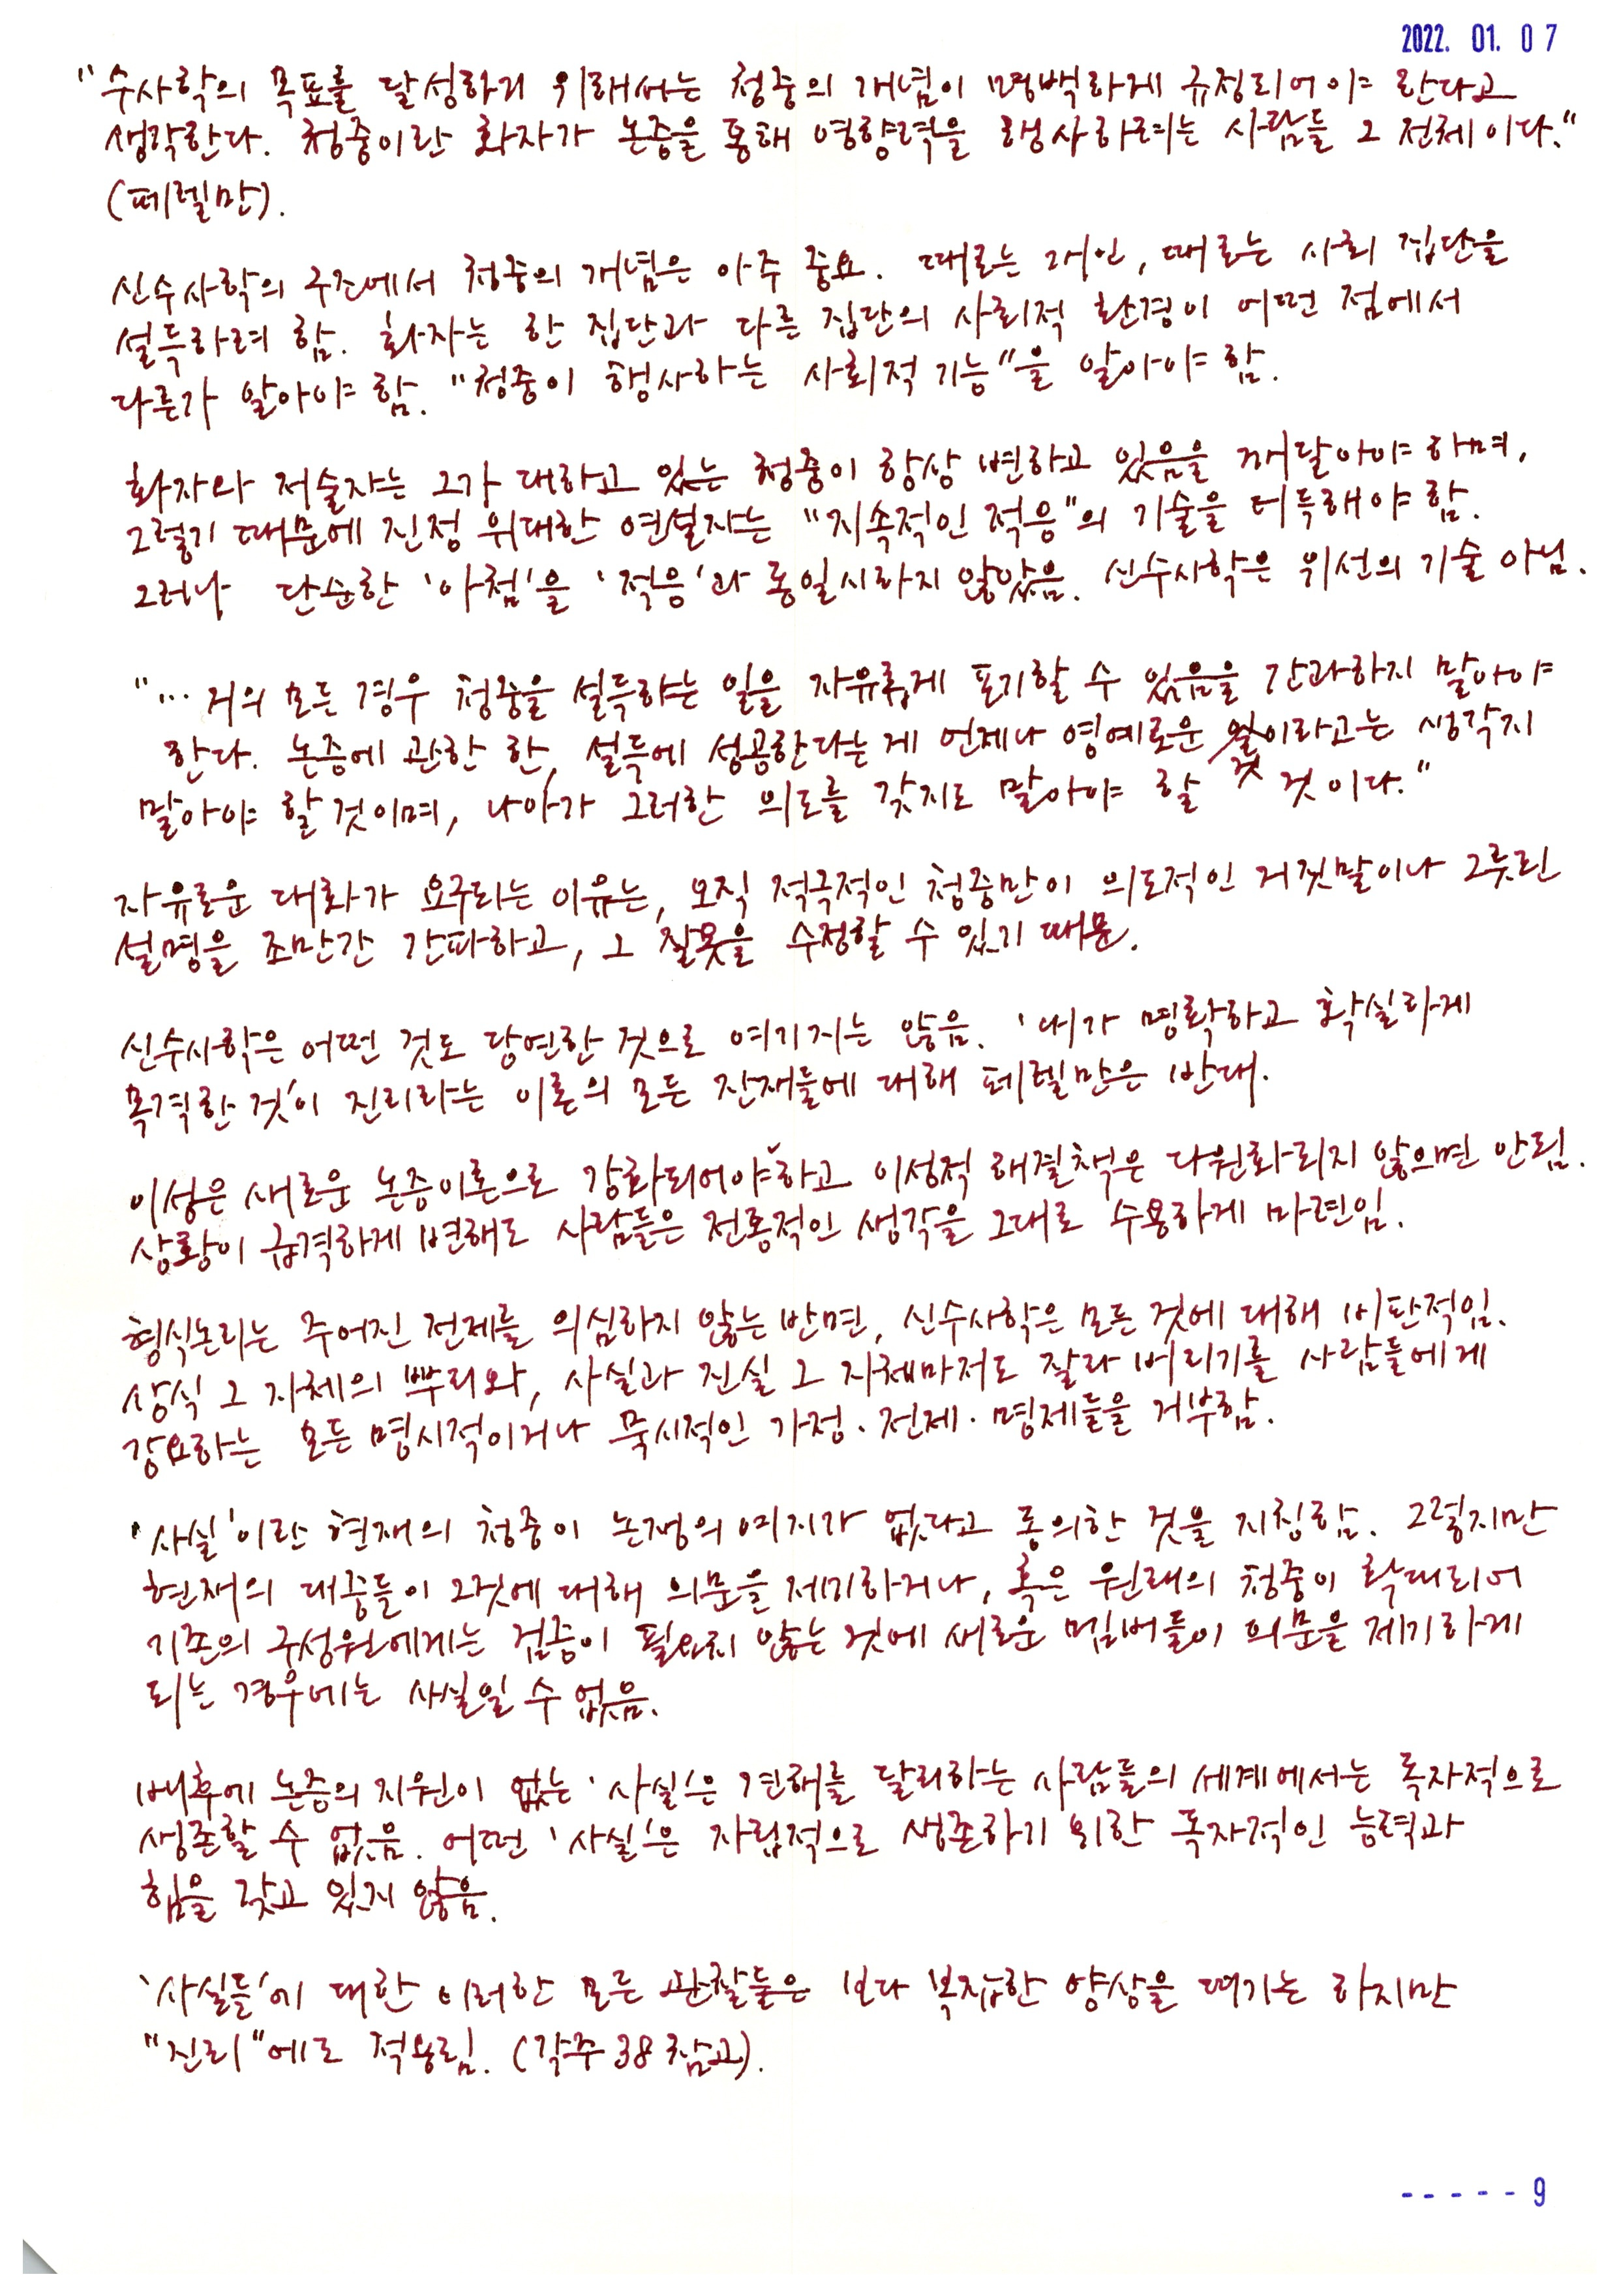 2022. 01. 07
"수사학의 목표를 달성하기 위해서는 청중의 개념이 명백하게 규정되어야 한다고
생각한다. 청중이란 화자가 논증을 통해 영향력을 행사하려는 사람들 그 전체이다."
(페렐만).
신수사학의 구조에서 청중의 개념은 아주 중요. 때로는 개인, 때로는 사회 집단을
설득하려 함. 화자는 한 집단과 다른 집단의 사회적 환경이 어떤 점에서
다른가 알아야 함. "청중이 행사하는 사회적 기능"을 알아야 함.
화자와 저술자는 그가 대하고 있는 청중이 항상 변하고 있음을 깨달아야 하며,
그렇기 때문에 진정 위대한 연설자는 "지속적인 적응"의 기술을 터득해야 함.
그러나 단순한 '아첨'을 '적응'과 동일시하지 않았음. 신수사학은 위선의 기술 아님.
"… 거의 모든 경우 청중을 설득하는 일을 자유롭게 포기할 수 있음을 간과하지 말아야
한다. 논증에 관한 한, 설득에 성공한다는 게 언제나 영예로운 것이라고는 생각지
말아야 할 것이며, 나아가 그러한 의도를 갖지도 말아야 할 것이다."
자유로운 대화가 요구되는 이유는, 오직 적극적인 청중만이 의도적인 거짓말이나 그릇된
설명을 조만간 간파하고, 그 잘못을 수정할 수 있기 때문.
신수사학은 어떤 것도 당연한 것으로 여기지는 않음. '내가 명확하고 확실하게
목격한 것'이 진리라는 이론의 모든 잔재들에 대해 페렐만은 반대.
이성은 새로운 논증이론으로 강화되어야 하고 이성적 해결책은 다원화되지 않으면 안됨.
상황이 급격하게 변해도 사람들은 전통적인 생각을 그대로 수용하게 마련임.
형식논리는 주어진 전제를 의심하지 않는 반면, 신수사학은 모든 것에 대해 비판적임.
상식 그 자체의 뿌리와, 사실과 진실 그 자체마저도 잘라 버리기를 사람들에게
강요하는 모든 명시적이거나 묵시적인 가정·전제·명제들을 거부함.
'사실'이란 현재의 청중이 논쟁의 여지가 없다고 동의한 것을 지칭함. 그렇지만
현재의 대중들이 그것에 대해 의문을 제기하거나, 혹은 원래의 청중이 확대되어
기존의 구성원에게는 검증이 필요치 않는 것에 새로운 멤버들이 의문을 제기하게
되는 경우에는 사실일 수 없음.
배후에 논증의 지원이 없는 '사실'은 견해를 달리하는 사람들의 세계에서는 독자적으로
생존할 수 없음. 어떤 '사실'은 자립적으로 생존하기 위한 독자적인 능력과
힘을 갖고 있지 않음.
'사실들'에 대한 이러한 모든 관찰들은 보다 복잡한 양상을 띠기는 하지만
"진리"에도 적용됨. (각주 38 참고).
-----9